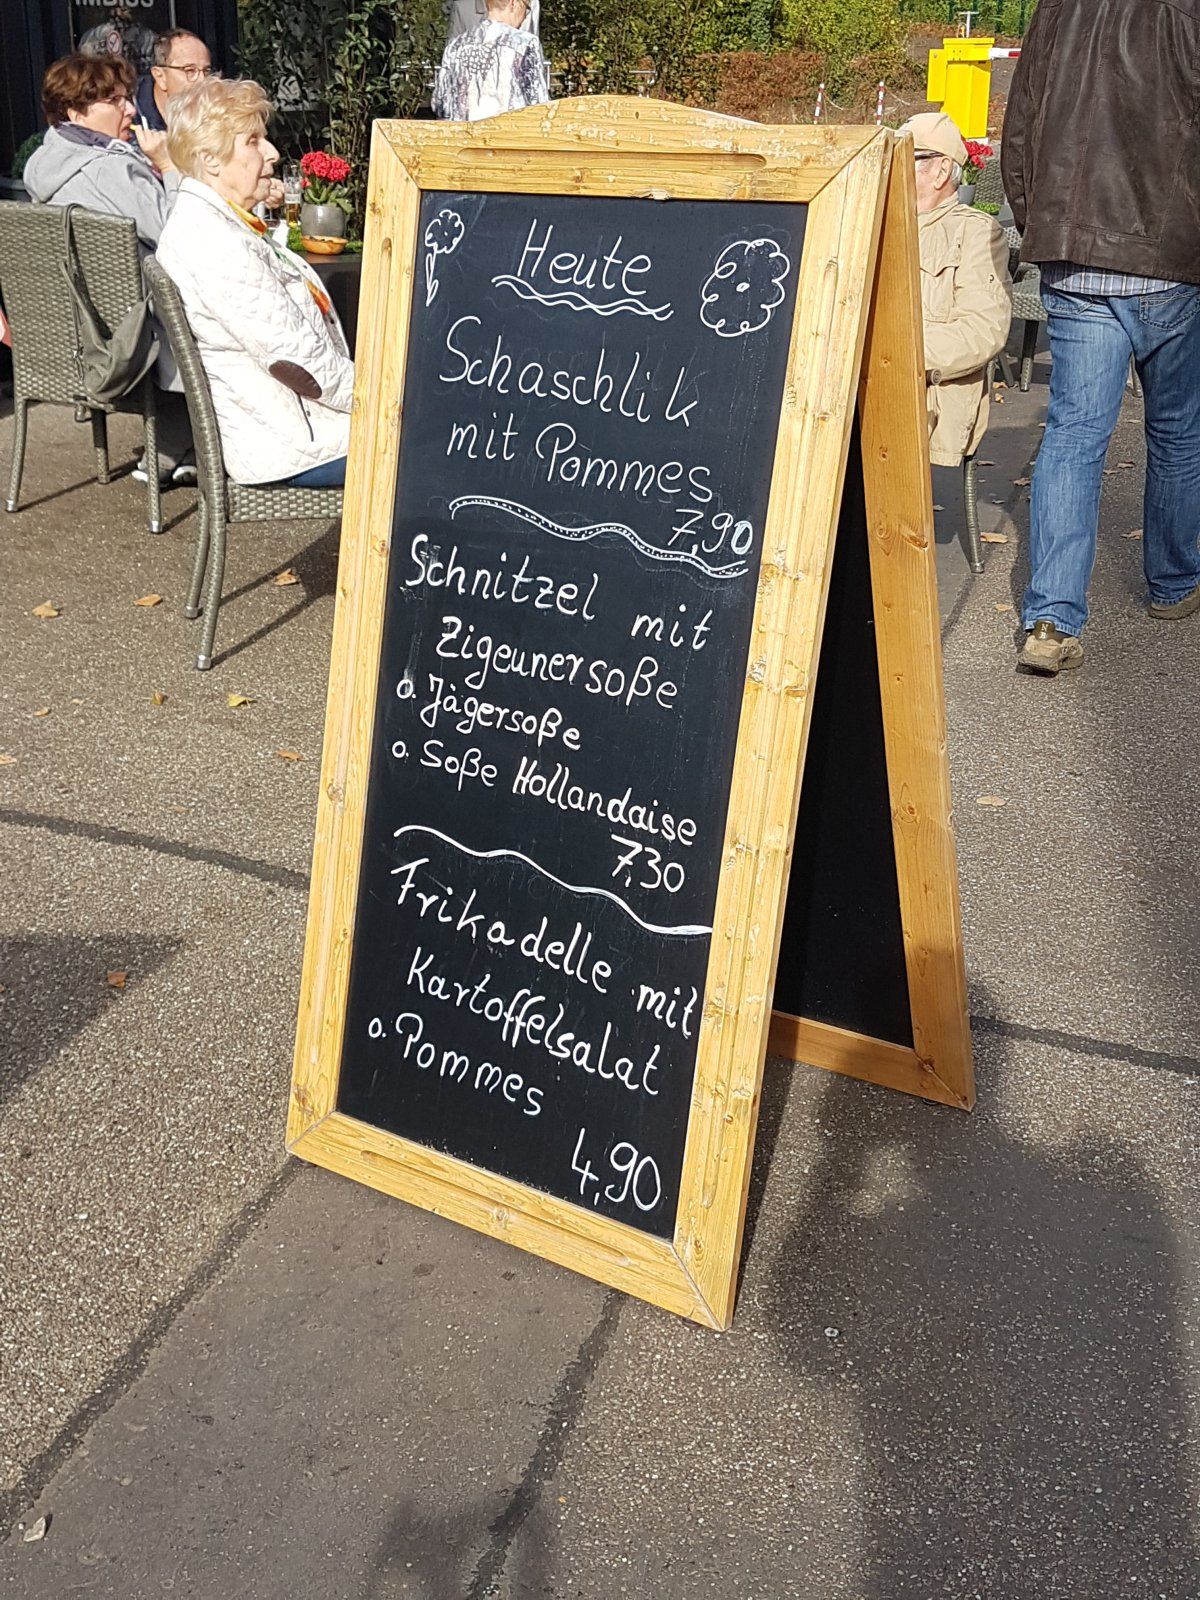 IMBISS
Heute
Schaschlik
mit Pommes
7,90
Schnitzel mit
Zigeunersoße
o. Jägersoße
o. Soße Hollandaise
7,30
Frikadelle mit
Kartoffelsalat
o. Pommes
4,90